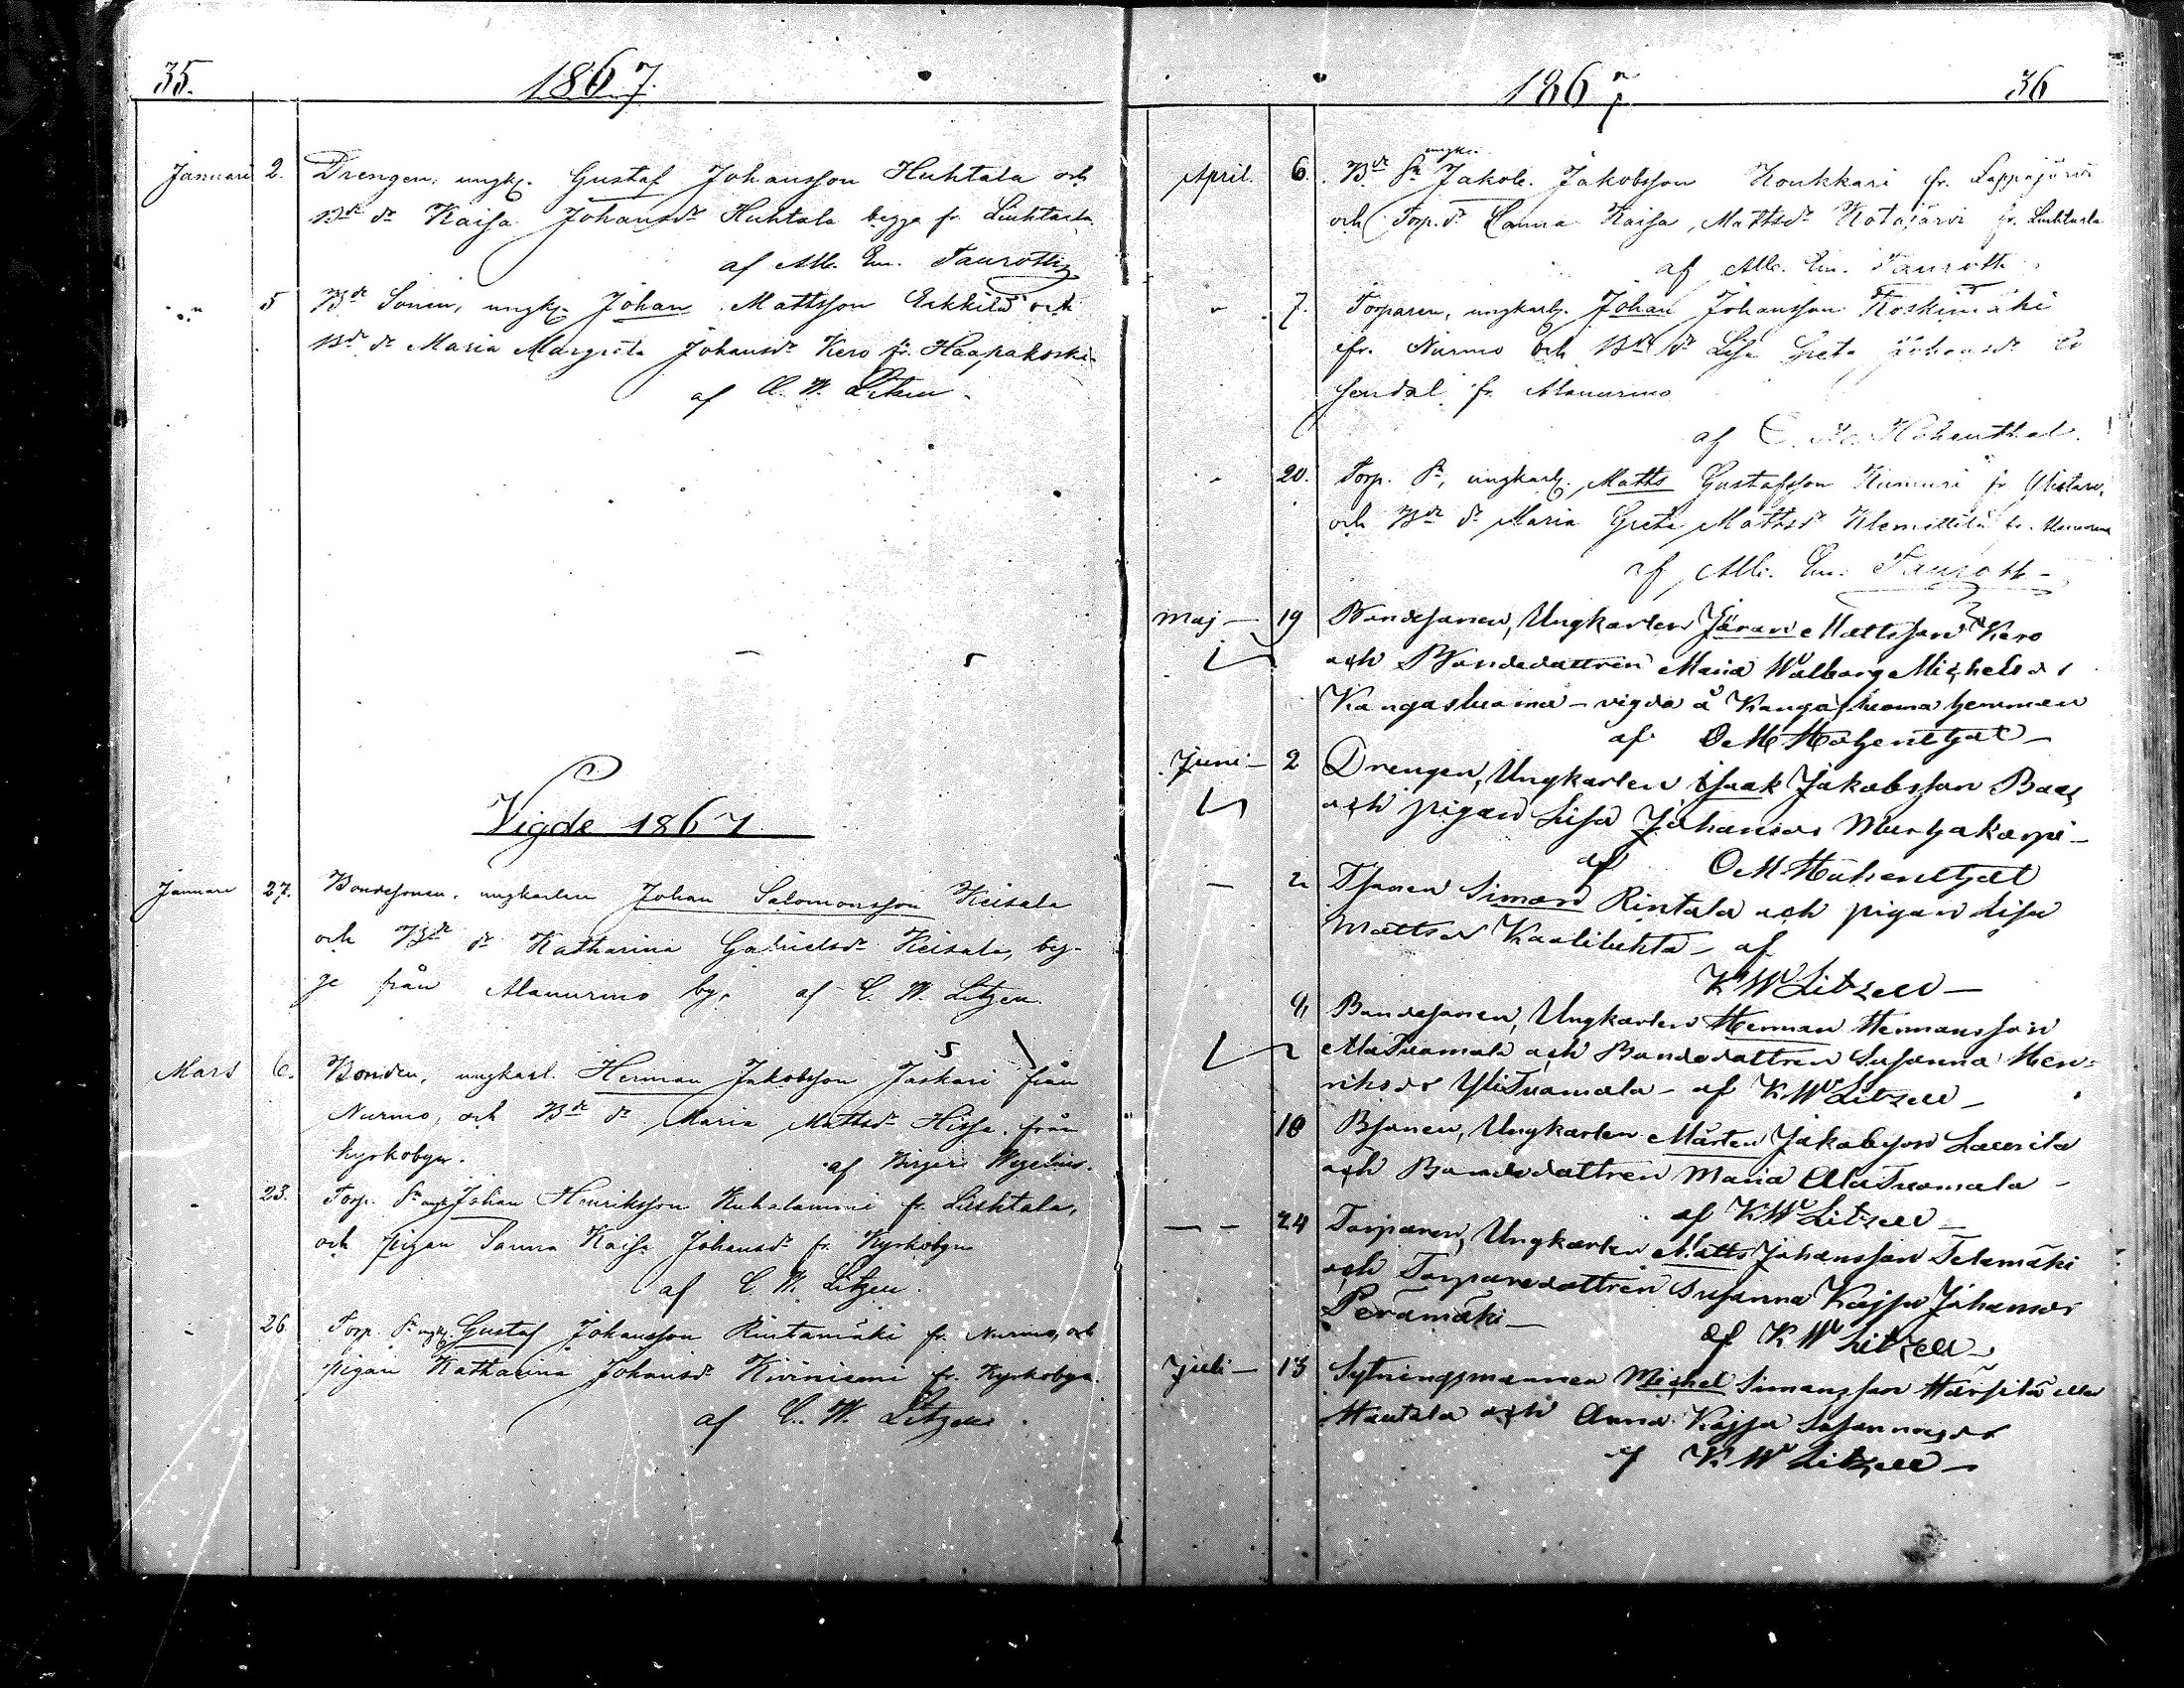 35.
1867.
Januari 2. Drengen, ungk. Gustaf Johansson Huhtala och
Bde dr Kaisa Johansdr Huhtala begge fr. Liuhtarla
af Alb. Em. Tauroth
" 5 Bde Sonen, ungk. Johan Mattsson Erkkilä och
Bde dr Maria Margreta Johansdr Kero fr. Haapakoski
af C. W. Litzen.
Vigde 1867
Januari 27. Bondesonen, ungkarlen Johan Salomonsson Keisala
och Bde dr Katharina Gabrielsdr Keisala, beg-
ge från Alanurmo by, af C. W. Litzen.
Mars 6. Bonden, ungkarl. Herman Jakobsson Jaskari från
Nurmo, och Bde dr Maria Mattsdr Hissa från
kyrkobyn. af Birger Wegelius.
" 23. Torp. Sn ungk. Johan Henriksson Kuhalammi fr. Liuhtala,
och pigan Sanna Kaisa Johansdr fr. Kyrkobyn
af C. W. Litzen.
" 26. Torp. Sn ungk. Gustaf Johansson Rintamäki fr. Nurmo, och
pigan Katharina Johansdr Kiviniemi fr. Kyrkobyn.
af C. W. Litzen.
1867
36
April. 6. Bde Sn ungk. Jakob Jakobsson Koukkari fr. Lappajärvi
och Torp. dr Sanna Kaisa Mattsdr Kotajärvi fr. Liuhtarla
af Alb. Em. Tauroth
" 7. Torparen, ungkarl. Johan Johansson Koskimäki
fr. Nurmo och Bde dr Lisa Greta Johansdr
sendal fr. Alanurmo
af O. M. Hohenthal.
" 20. Torp. Sn, ungkarl. Matts Gustafsson fr. Ylistaro,
och Bde dr Maria Greta Mattsdr Klemettilä fr. Alanurmo
af Alb. Em. Tauroth
Maj 19 Bondesonen, Ungkarlen Jöran Mattsson Kero
och Bondedottren Maria Walborg Michelsdr
Kangasluoma - vigda å Kangasluoma hemman
af O M Hohenthal
Juni 2 Drengen, Ungkarlen Isaak Jakobsson
och pigan Lisa Johansdr
af O M Hohenthal
— 2 Tsonen Simon Rintala och pigan Lisa
Mattsdr af
K W Litzen
9 Bondesonen, Ungkarlen Herman Hermansson
AlaTuomala och Bondedottren Susanna Hen-
riksdr YliTuomala - af K W Litzen
10 Bsonen, Ungkarlen Mårten Jakobsson Laurila
och Bondedottren Maria AlaTuomala
af K W Litzen
24 Torparen, Ungkarlen Matts Johansson Telamäki
och Torparedottren Susanna Kajsa Johansdr
Perämäki
af K W Litzen
Juli 13 Sytningsmannen Michel Simonsson Härsilä eller
Hautala och Anna Kajsa
af K W Litzen